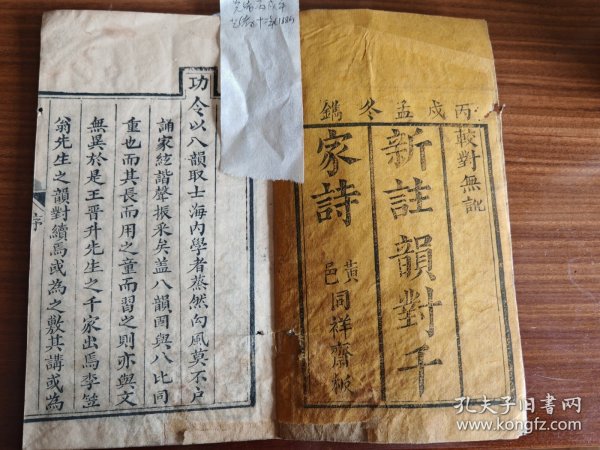 丙戌孟冬鐫
較對無訛
新註韻對千
家詩
黄邑同祥齋板
功
令以八韻取士海内學者蒸然向風莫不户
誦家絃諧聲振采矣蓋八韻固與八比同
重也而其長而用之童而習之則亦與文
無異於是王晋升先生之千家出焉李笠
翁先生之韻對續焉或為之敷其講或為
序
孔夫子旧书网
www.kongfz.com